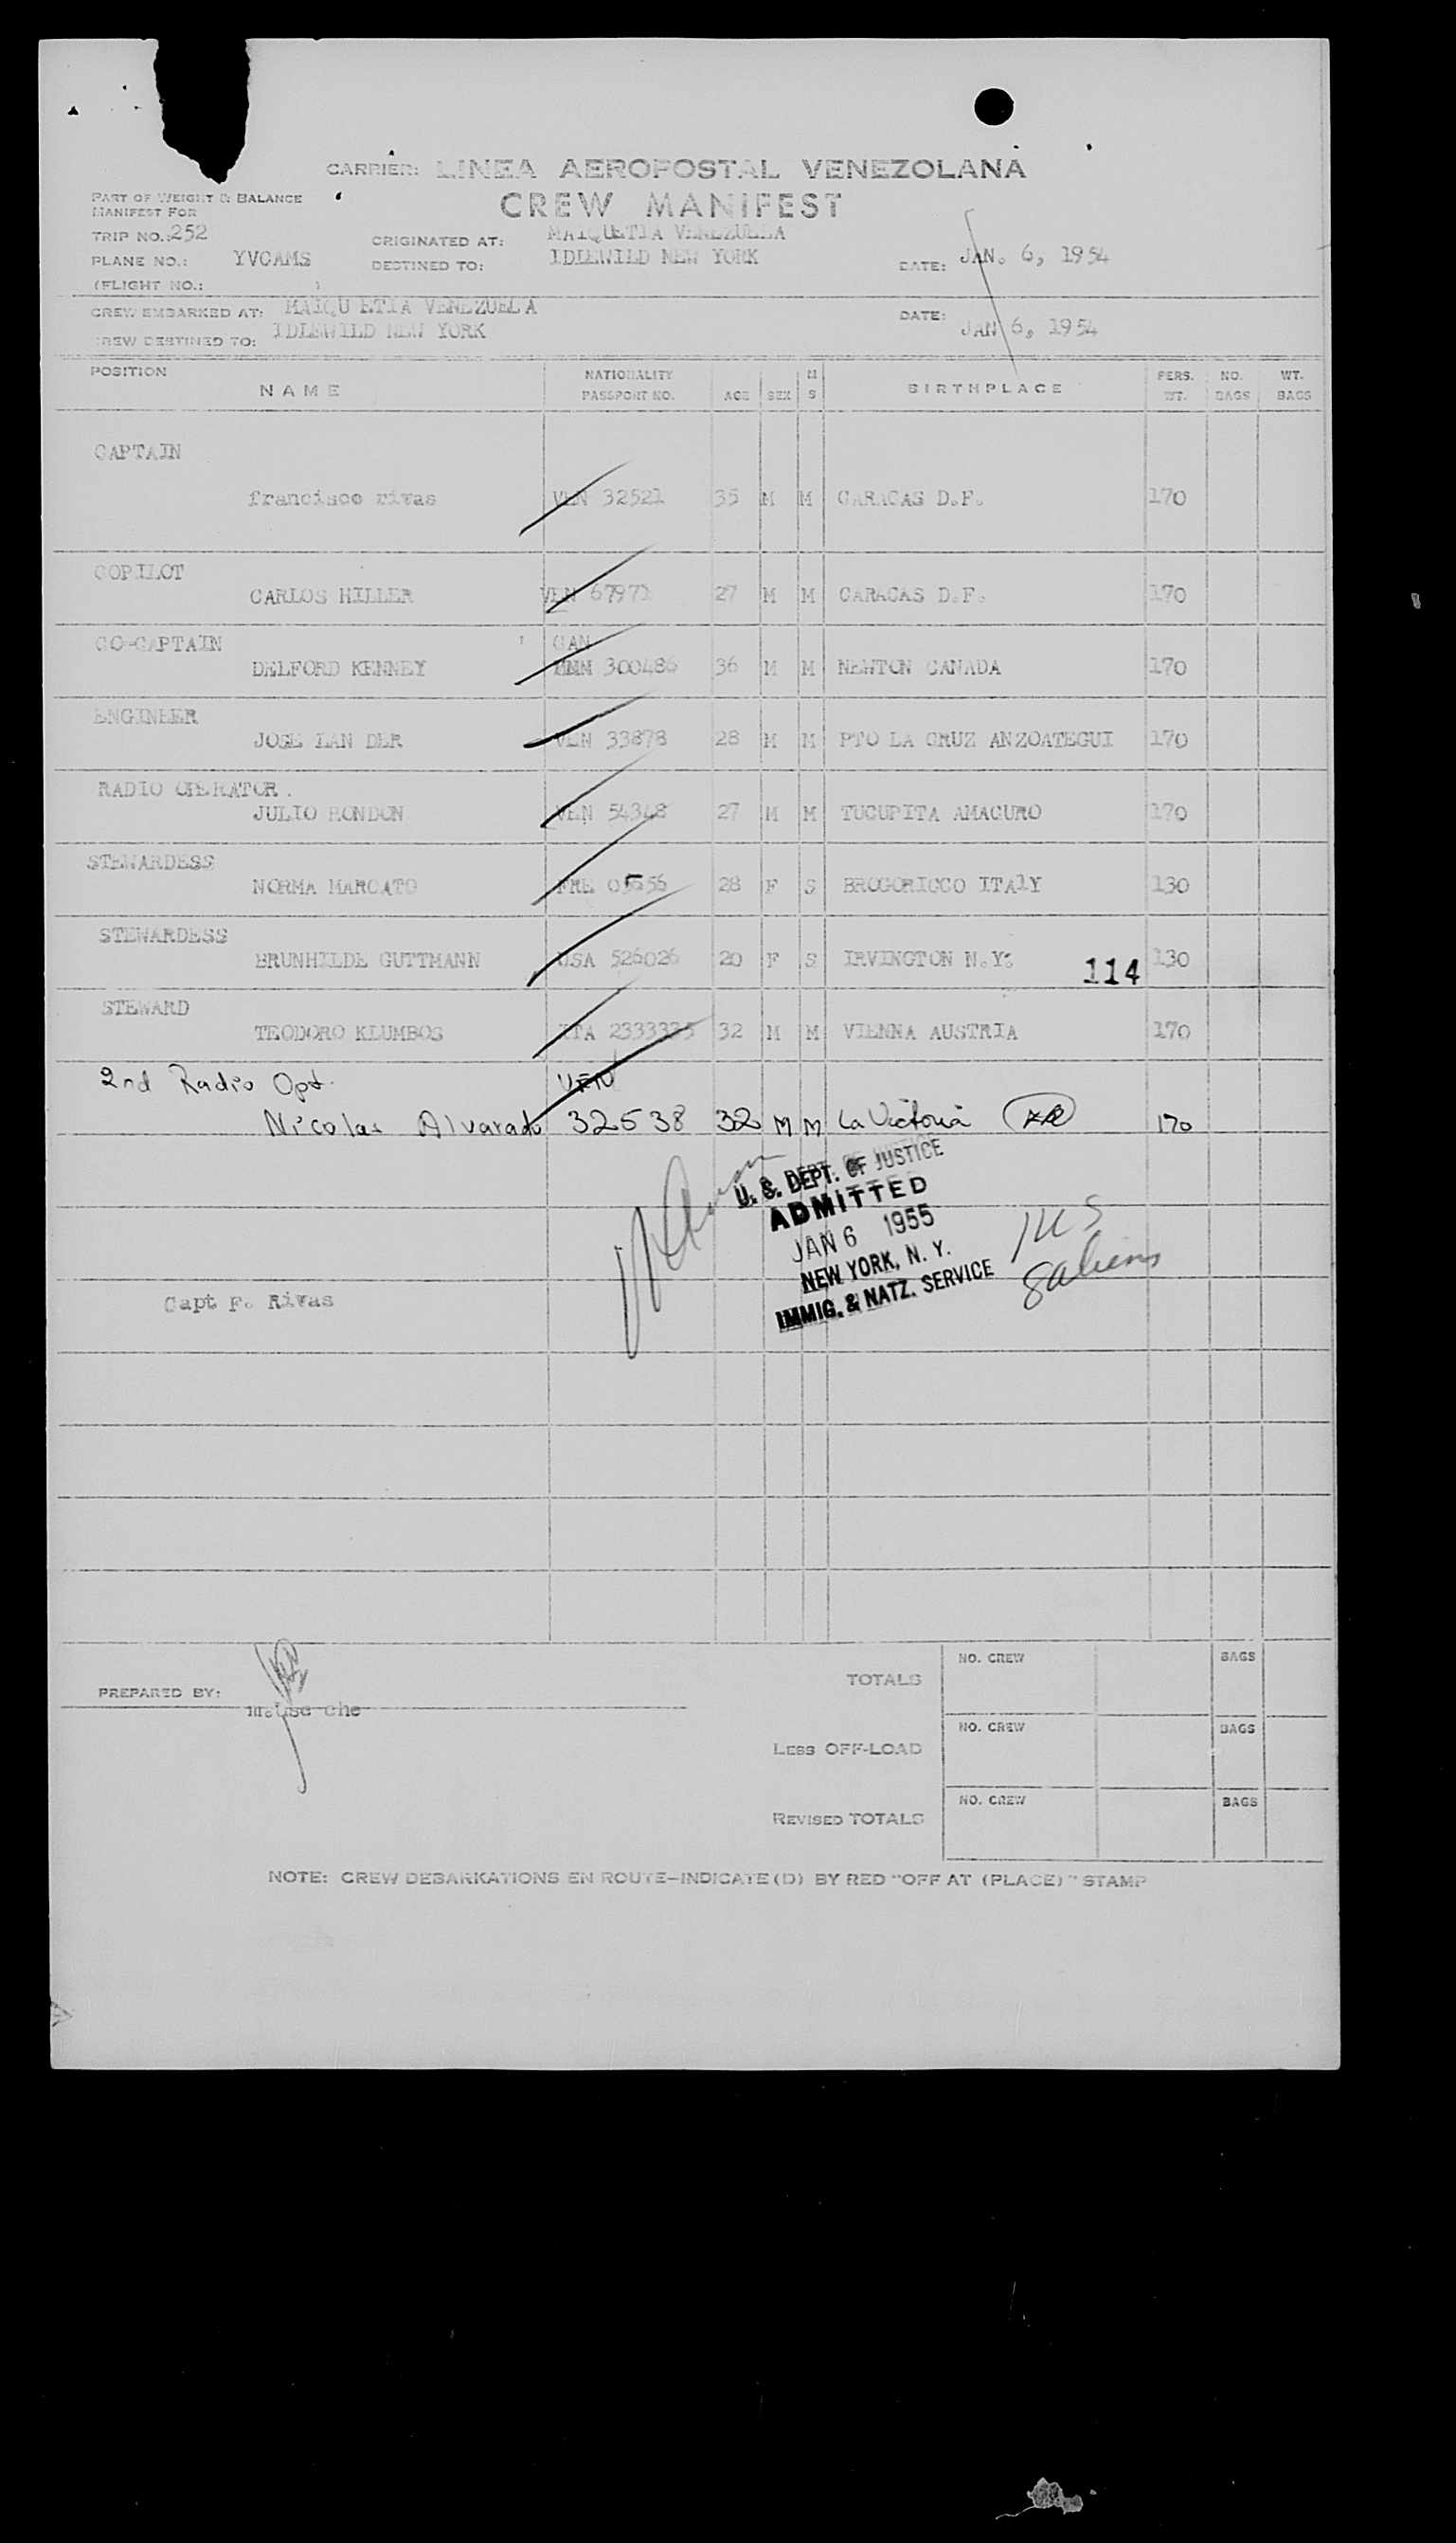 CARRIER: LINEA AEROPOSTAL VENEZOLANA
CREW MANIFEST
PART OF WEIGHT & BALANCE
MANIFEST FOR
TRIP NO.: 252
PLANE NO.: YVCAMS
(FLIGHT NO.: )
ORIGINATED AT: MAIQUETIA VENEZUELA
DESTINED TO: IDLEWILD NEW YORK
DATE: JAN. 6, 1954
CREW EMBARKED AT: MAIQU ETIA VENEZUELA
CREW DESTINED TO: IDLEWILD NEW YORK
DATE: JAN 6, 1954
POSITION NAME NATIONALITY PASSPORT NO. AGE SEX M S BIRTHPLACE PERS. WT. NO. BAGS WT. BAGS
CAPTAIN
francisco rivas VEN 32521 35 M M CARACAS D.F. 170
COPILOT
CARLOS HILLER VEN 67971 27 M M CARACAS D.F. 170
CO-CAPTAIN CAN
DELFORD KENNEY 300486 36 M M NEWTON CANADA 170
ENGINEER
JOSE LAN DER VEN 33878 28 M M PTO LA CRUZ ANZOATEGUI 170
RADIO OPERATOR.
JULIO RONDON VEN 54348 27 M M TUCUPITA AMACURO 170
STEWARDESS
NORMA MARCATO FRE 28 F S BROGORICCO ITALY 130
STEWARDESS
BRUNHILDE GUTTMANN USA 526026 20 F S IRVINGTON N.Y. 130
114
STEWARD
TEODORO KLUMBOS ITA 32 M M VIENNA AUSTRIA 170
2nd Radio Opt. VEN
Nicolas Alvarado 32538 32 M M La Victoria 170
U. S. DEPT. OF JUSTICE
ADMITTED
JAN 6 1955
NEW YORK, N. Y.
IMMIG. & NATZ. SERVICE
Capt F. Rivas
PREPARED BY:
TOTALS NO. CREW BAGS
LESS OFF-LOAD NO. CREW BAGS
REVISED TOTALS NO. CREW BAGS
NOTE: CREW DEBARKATIONS EN ROUTE-INDICATE (D) BY RED "OFF AT (PLACE)" STAMP